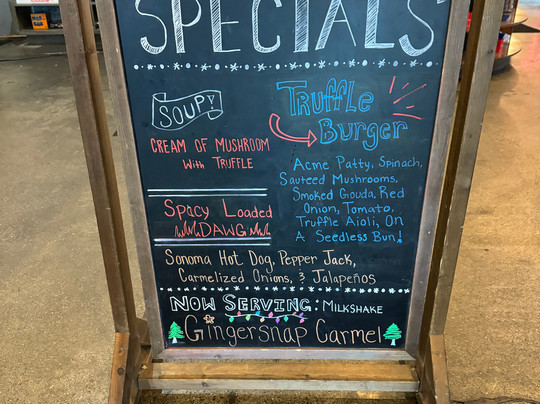 SPECIALS
SOUP!
CREAM OF MUSHROOM
With TRUFFLE
Truffle
Burger
Acme Patty, Spinach,
Sauteed Mushrooms,
Smoked Gouda, Red
Onion, Tomato,
Truffle Aioli, On
A Seedless Bun!
Spacy Loaded
DAWG
Sonoma Hot Dog, Pepper Jack,
Carmelized Onions, & Jalapeños
NOW SERVING: MILKSHAKE
Gingersnap Carmel